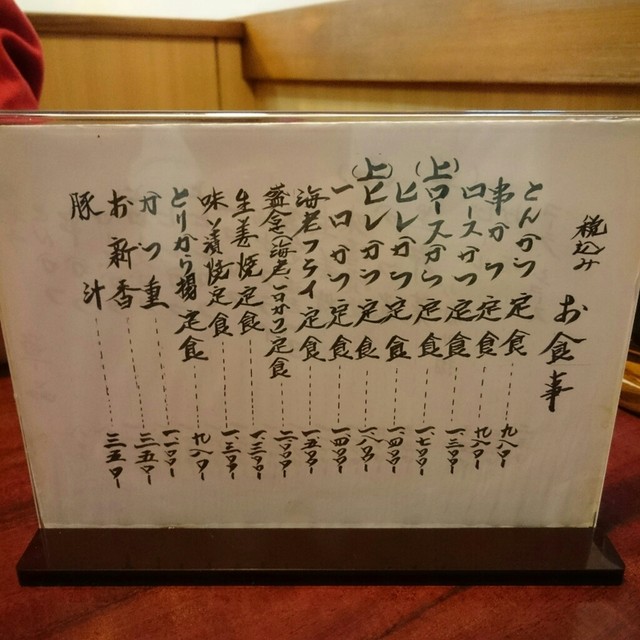 税込み
お食事
とんかつ定食 九八〇ー
串かつ定食 九八〇ー
ロースかつ定食 一、三〇〇ー
(上)ロースかつ定食 一、七〇〇ー
ヒレかつ定食 一、四〇〇ー
(上)ヒレかつ定食 一、八〇〇ー
一口かつ定食 一、四〇〇ー
海老フライ定食 一、五〇〇ー
盛合せ(海老、一口カツ)定食
生姜焼定食
味噌漬焼定食 一、三〇〇ー
とりから揚定食 九八〇ー
かつ重 一、一〇〇ー
お新香 三五〇ー
豚汁 三五〇ー